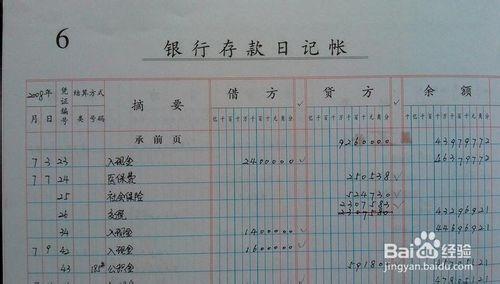 6
银行存款日记帐
2008年 凭证编号 结算方式 摘要 借方 ✓ 贷方 ✓ 余额
月 日 类 号码 亿千百十万千百十元角分 亿千百十万千百十元角分 亿千百十万千百十元角分
承前页 9260000 43979772
7 3 23 入现金 2400000 ✓ 46379772
7 7 24 医保费 250538 ✓
25 社会保险 524730 ✓
2307583 ✓
26 2307580 43296921
34 入现金 1400000 ✓ 44696921
7 9 42 入现金 1600000 ✓
43 公积金 59180
Bai 经验
jingyan.baidu.com